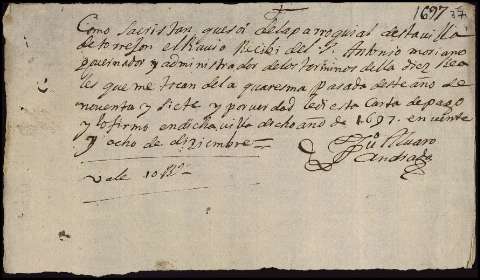 1697 37
Como sacristan que soi de la parroquial desta villa
de torrejon el Ruvio Recibi del Sr. Antonio moriano
y administrador de los terminos della diez Rea
les que me tocan dela quaresma pasada deste año de
noventa y siete y por verdad le di esta Carta de pago
y lo firmo en dicha villa dicho año de 1697. en veinte
y ocho de diziembre
Alvaro
Vale 10 Rs
Andrada